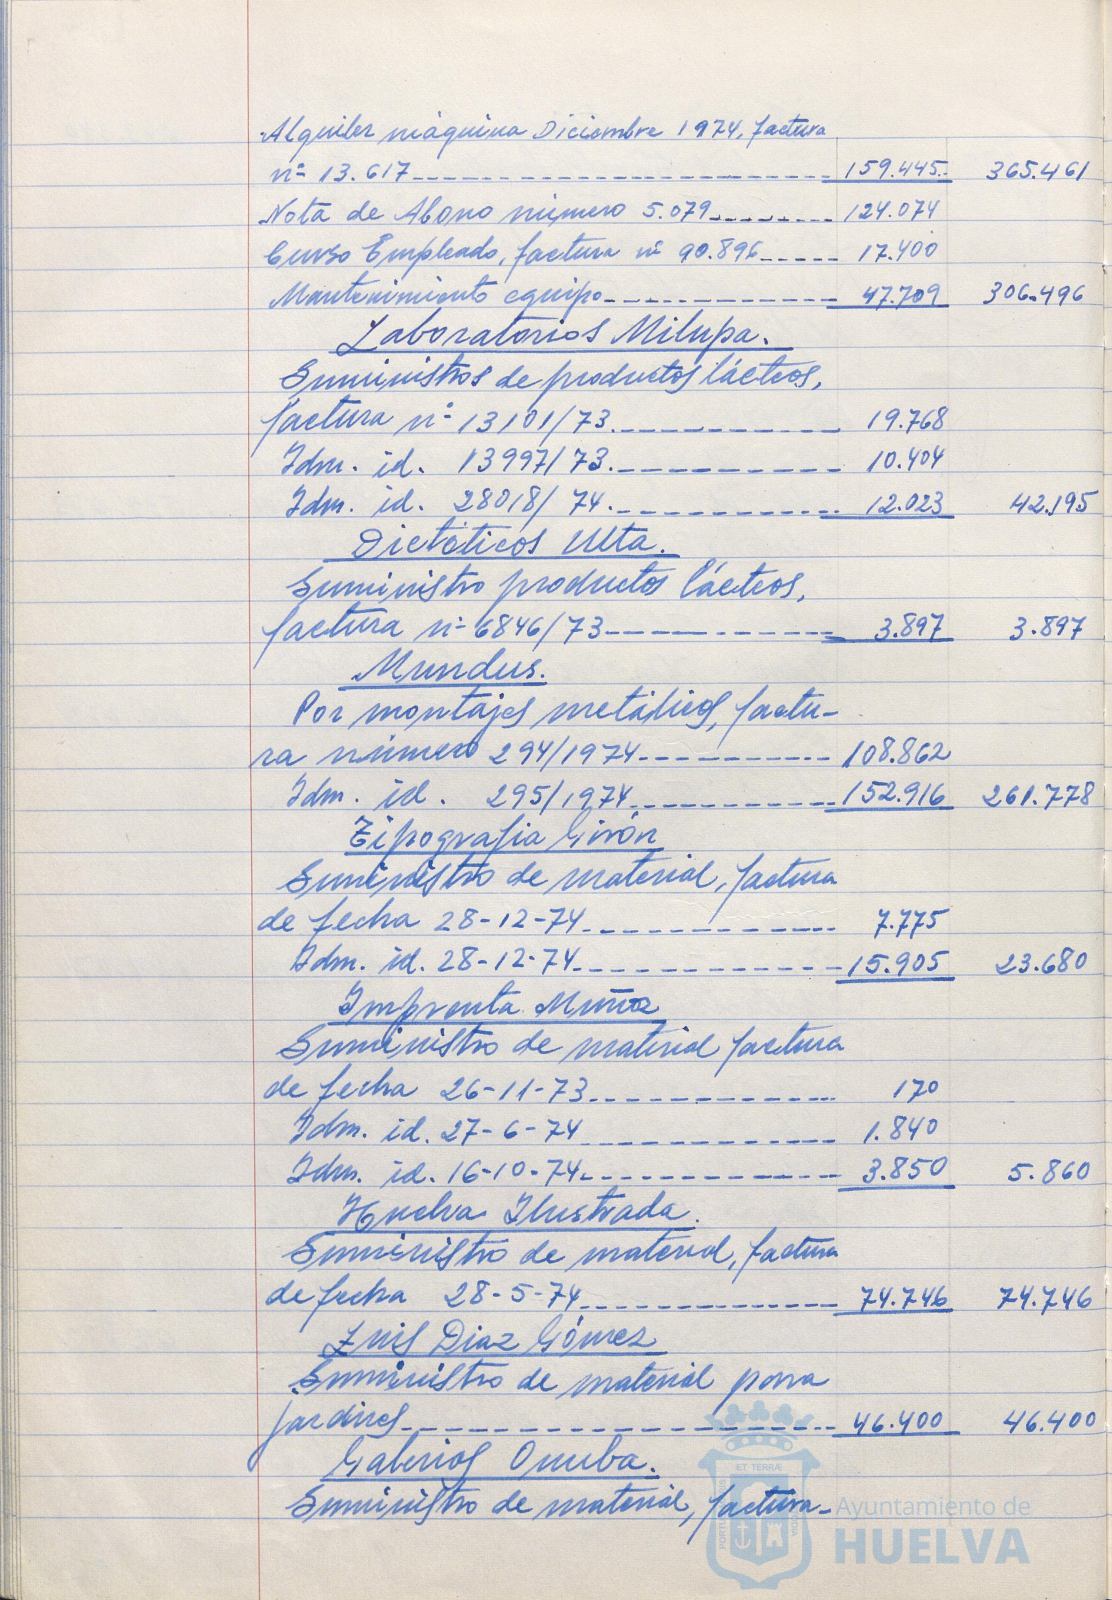 Alquiler máquina Diciembre 1974, factura
nº 13.617 159.445 365.461
Nota de Abono número 5.079 124.074
Curso Empleado, factura nº 90.896 17.400
Mantenimiento equipo 47.709 306.496
Laboratorios Milupa.
Suministros de productos lácteos,
factura nº 13101/73 19.768
Idm. id. 13997/73 10.404
Idm. id. 28018/74 12.023 42.195
Dietéticos Ulta.
Suministro productos lácteos,
factura nº 6846/73 3.897 3.897
Mundus.
Por montajes metálicos, factu-
ra número 294/1974 108.862
Idm. id. 295/1974 152.916 261.778
Tipografia Girón
Suministro de material, factura
de fecha 28-12-74 7.775
Idm. id. 28-12-74 15.905 23.680
Imprenta Muñoz
Suministro de material factura
de fecha 26-11-73 170
Idm. id. 27-6-74 1.840
Idm. id. 16-10-74 3.850 5.860
Huelva Ilustrada.
Suministro de material, factura
de fecha 28-5-74 74.746 74.746
Luis Diaz Gómez
Suministro de material para
jardines 46.400 46.400
Galerias Onuba.
Suministro de material, factura-
ET TERRÆ
Ayuntamiento de
HUELVA